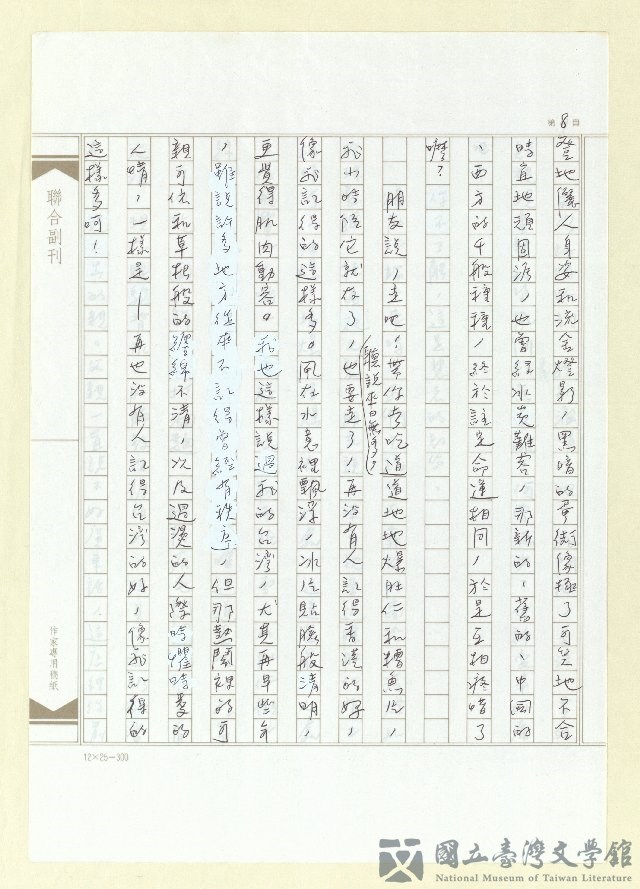 第8頁
登地儷人身姿和流金燈影，黑暗的骨街像極了可笑地不合
時宜地頑固派，也曾經水炭難容，那新的，舊的，中國的
，西方的千般種種，終於註定命運相同，於是互相疼惜了
嚒？
朋友說，走吧！與你去吃道道地地爆肚仁和糟魚片，
聽說來日無多，
飛水吟悟它就在了，也要走了，再沒有人記得香港的好，
像我記得的這樣多。風在水意裡飄深，冰片貼臉般清明，
更覺得肌肉動容。我也這樣說過我的台灣，尤其再早些年
，雖說許多地方從來不記得曾經有秩序，但那熱鬧裡的可
親可依和草根般的纏綿不清，以及過燙的人際時懼時愛的
人情，一樣是——再也沒有人記得台灣的好，像我記得的
這樣多呵！
聯合副刊
作家專用稿紙
12×25=300
國立臺灣文學館
National Museum of Taiwan Literature